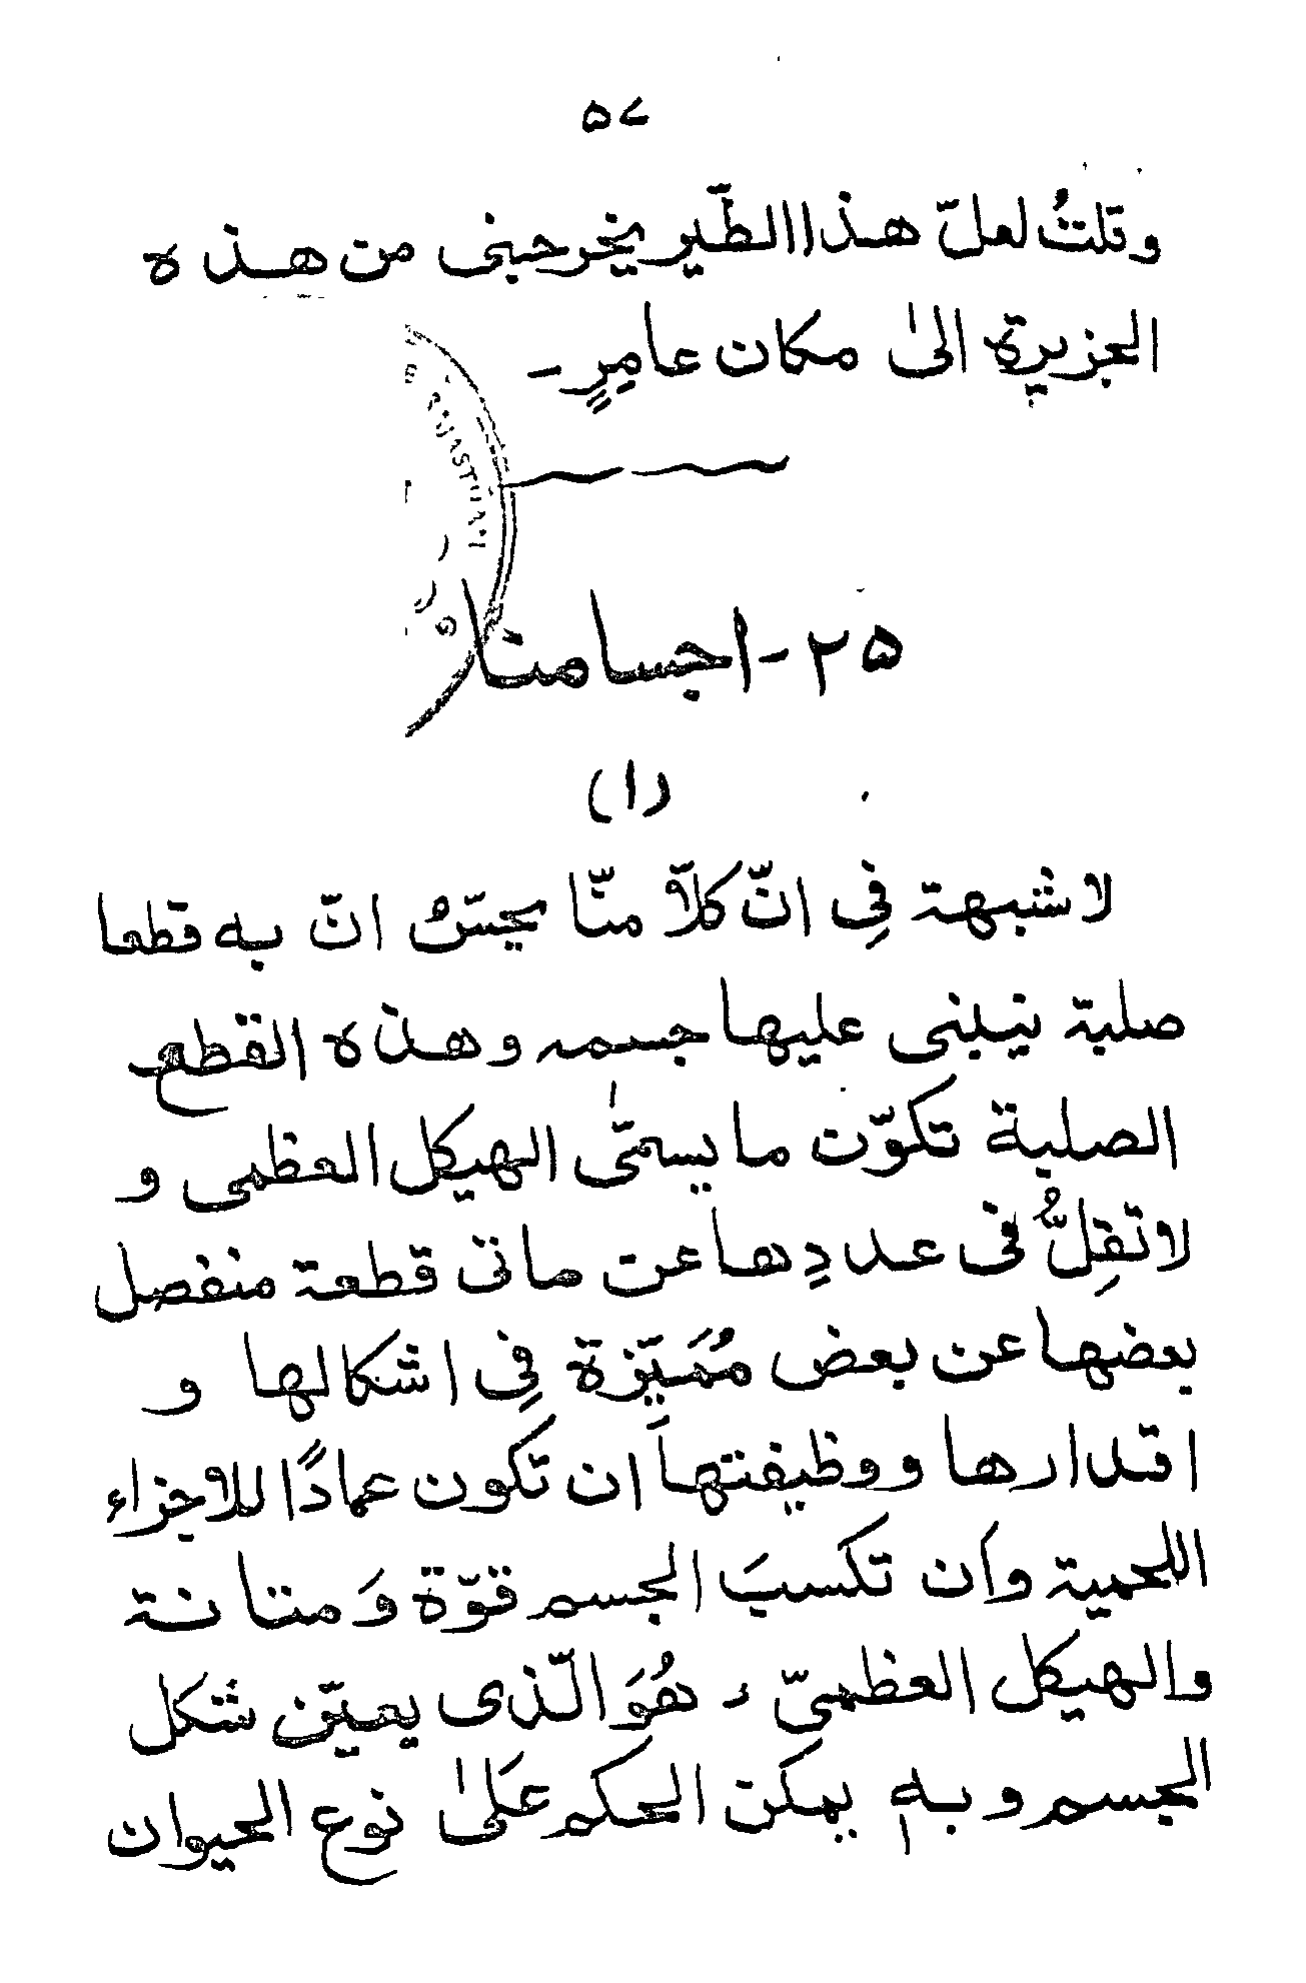 ۵۷
وقلتُ لعلّ هذا الطّير يخرجنى من هذه
الجزيرة الىٰ مكان عامِرٍ ـ
۲۵ - اجسامنا
(۱)
لا شبهة فِى انّ كلاّ منّا يحسّ انّ به قطعا
صلبة ينبنى عليها جسمه وهذه القطع
الصلبة تكوّن ما يسمّىٰ الهيكل العظمى و
لا تقِلُّ فى عددِها عن مأتى قطعة منفصل
بعضها عن بعض مُمَيّزة فِى اشكالها و
اقدارها ووظيفتها اَن تكون عمادًا للاجزاء
اللحمية واَن تكسبَ الجسم قوّة وَ متانة
والهيكل العظمىّ ، هُوَ الّذى يعيّن شكل
الجسم وبهٖ يمكن الحكم عَلىٰ نوع الحيوان
RAJASTHAN